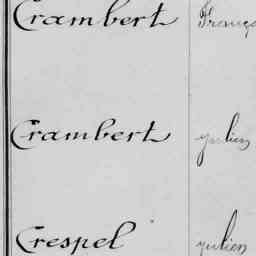 Crambert
Crambert Julien
Crespel Julien